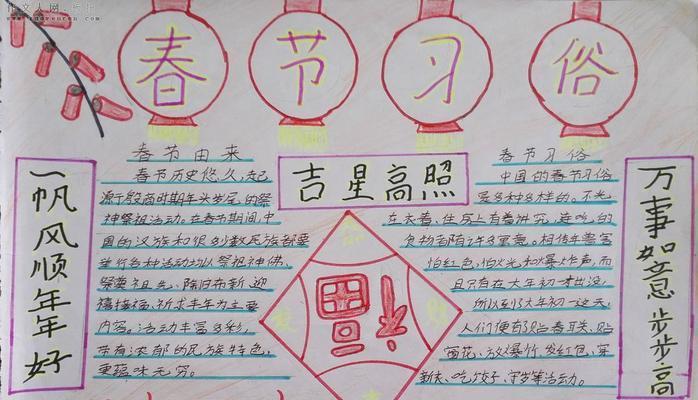 作文人网
春节习俗
一帆风顺年年好
吉星高照
万事如意步步高
春节由来
春节历史悠久,起
源于殷商时期年头岁尾的祭
神祭祖活动。在春节期间,中
国的汉族和很多少数民族都要
举行各种活动均以祭祖神佛、
祭奠祖先、除旧布新、迎
禧接福、祈求丰年为主要
内容。活动丰富多彩,
带有浓郁的民族特色,
更蕴味无穷。
春节习俗
中国的春节习俗
是多种多样的。不光
在衣着、住房上有着讲究,
食物有许多寓意。相传年兽害
怕红色、怕火光和爆炸声,而
且只有在大年初一才出没,
所以到了大年初一这天,
人们便有了贴春耳关、贴
窗花、放爆竹、发红包、穿
新衣、吃饺子、守岁等活动。
福